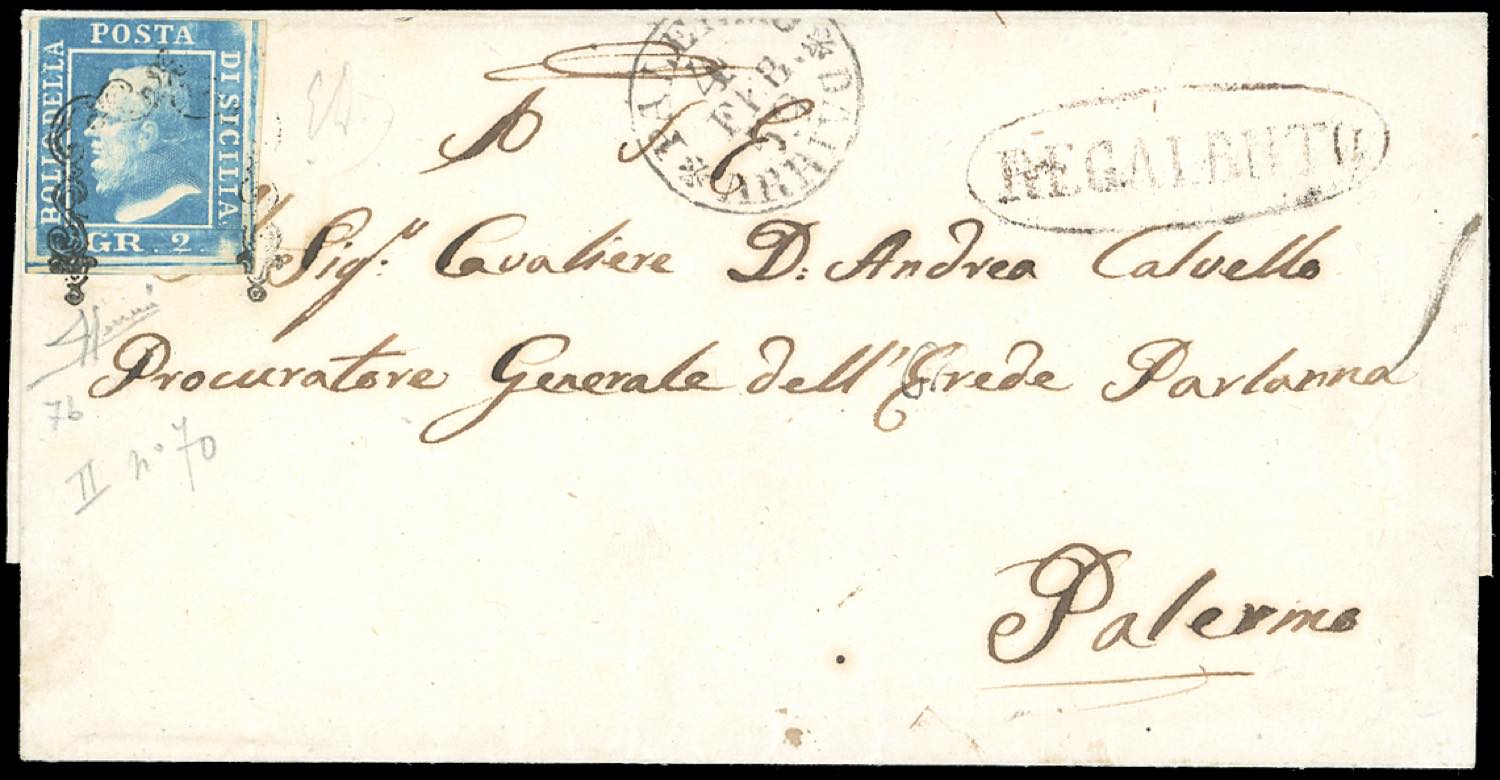 POSTA
BOLLO DELLA
DI SICILIA
GR. 2.
PALERMO
ARRIVO
FEB
REGALBUTO
A S E
Sig.r Cavaliere D: Andrea Calvello
Procuratore Generale dell'Erede Partanna
Palermo
7b
II n° 70